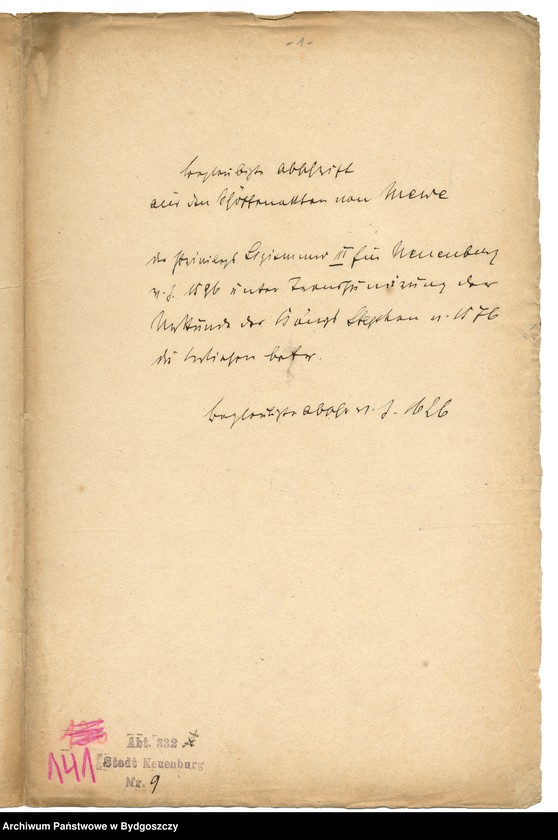 - 1 -
beglaubigte Abschrift
aus den Schöffenakten von Mewe
des Privilegs Sigismund III für Neuenburg
v. J. 1596 unter Transsumirung der
Urkunde des Königs Stephan v. 1576
die betr.
beglaubigte Abschr. v. J. 1626
141
Abt. 332
Stadt Neuenburg
Nr. 9
Archiwum Państwowe w Bydgoszczy